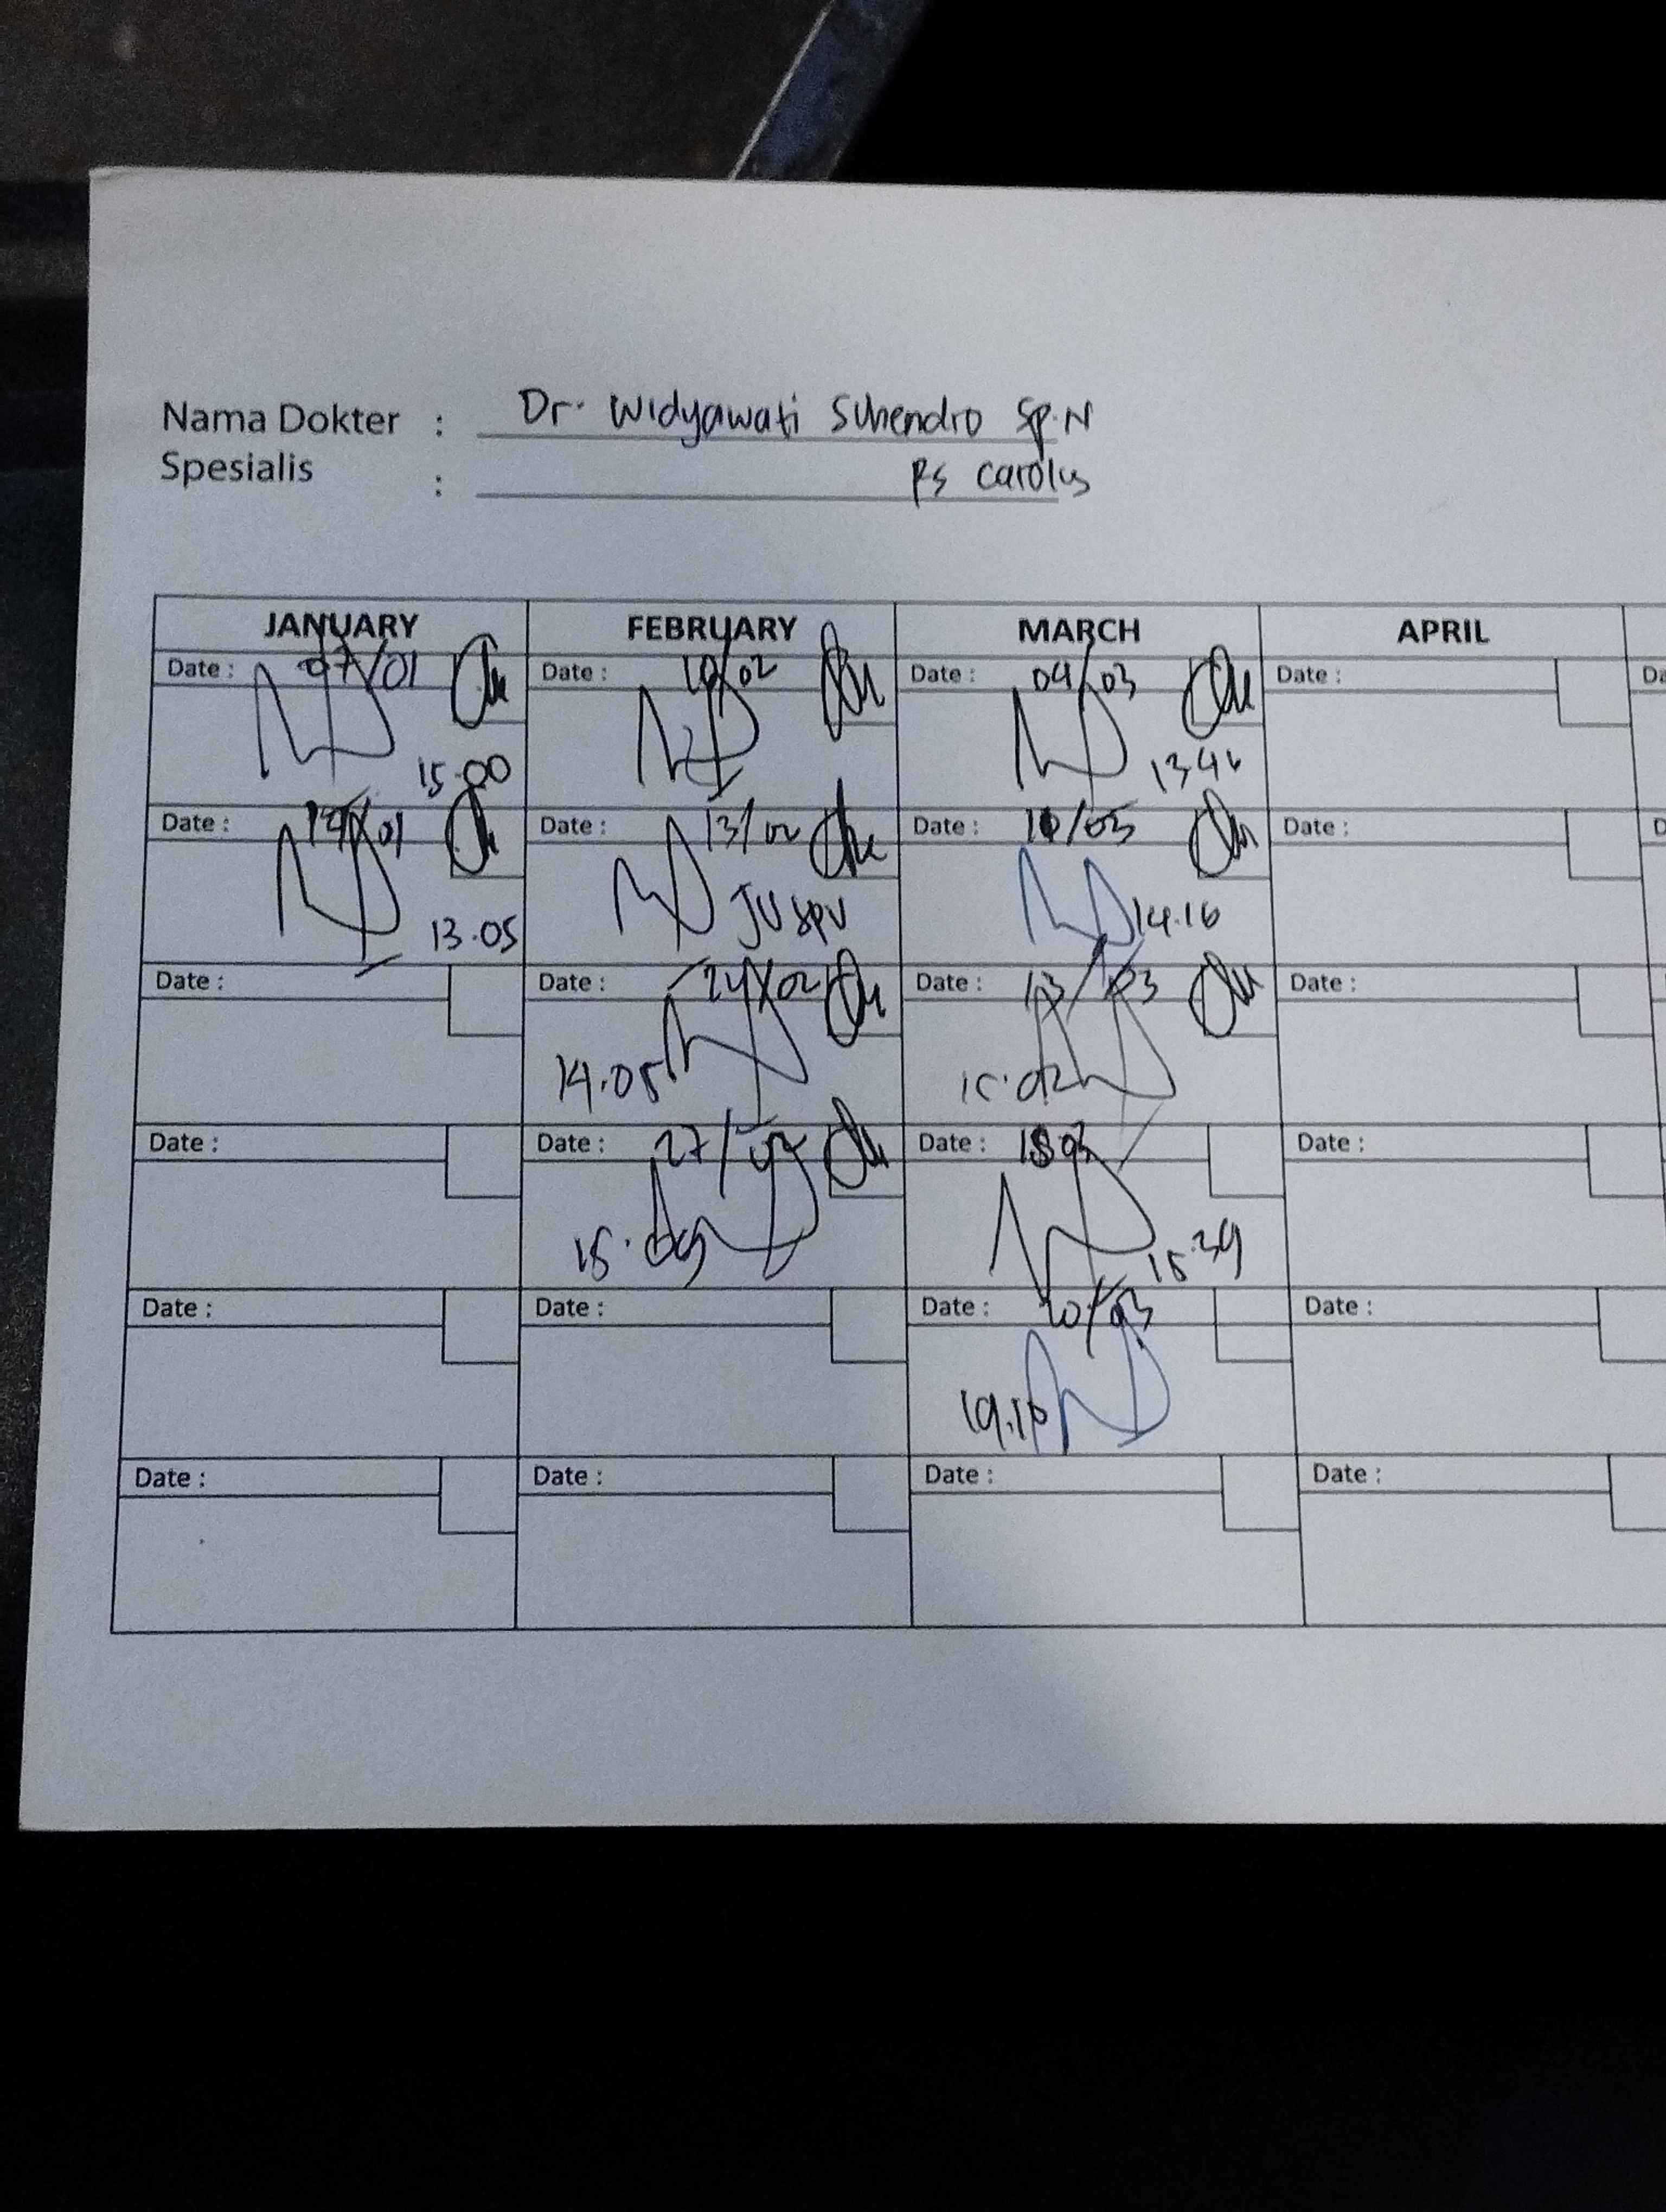 Nama Dokter : Dr. Widyawati Suhendro Sp.N
Spesialis : RS Carolus
JANUARY FEBRUARY MARCH APRIL
Date : 07/01 Date : 10/02 Date : 04/03 Date : Da
15.00 13.46
Date : /01 Date : 13/02 Date : 10/03 Date : D
13.05 JV SPV 14.16
Date : Date : 24/02 Date : 13/03 Date :
14.05 15.02
Date : Date : 27/02 Date : 18 03 Date :
15.09 15.39
Date : Date : Date : 20/03 Date :
19.10
Date : Date : Date : Date :